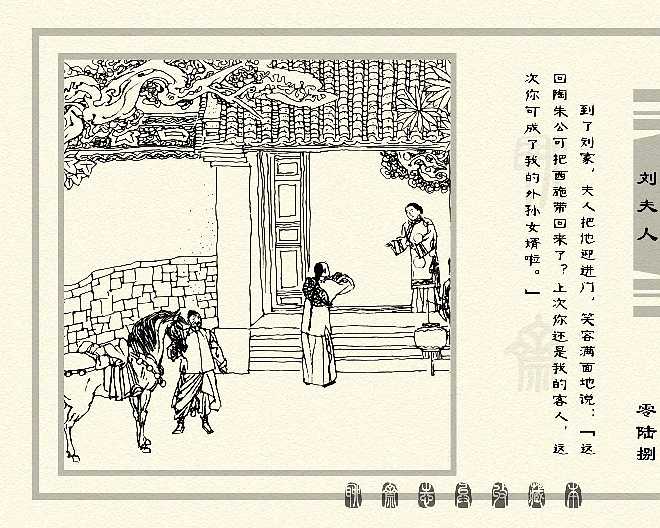 刘夫人
零陆捌
到了刘家，夫人把他迎进门，笑容满面地说：「这
回陶朱公可把西施带回来了？上次你还是我的客人，这
次你可成了我的外孙女婿啦。」